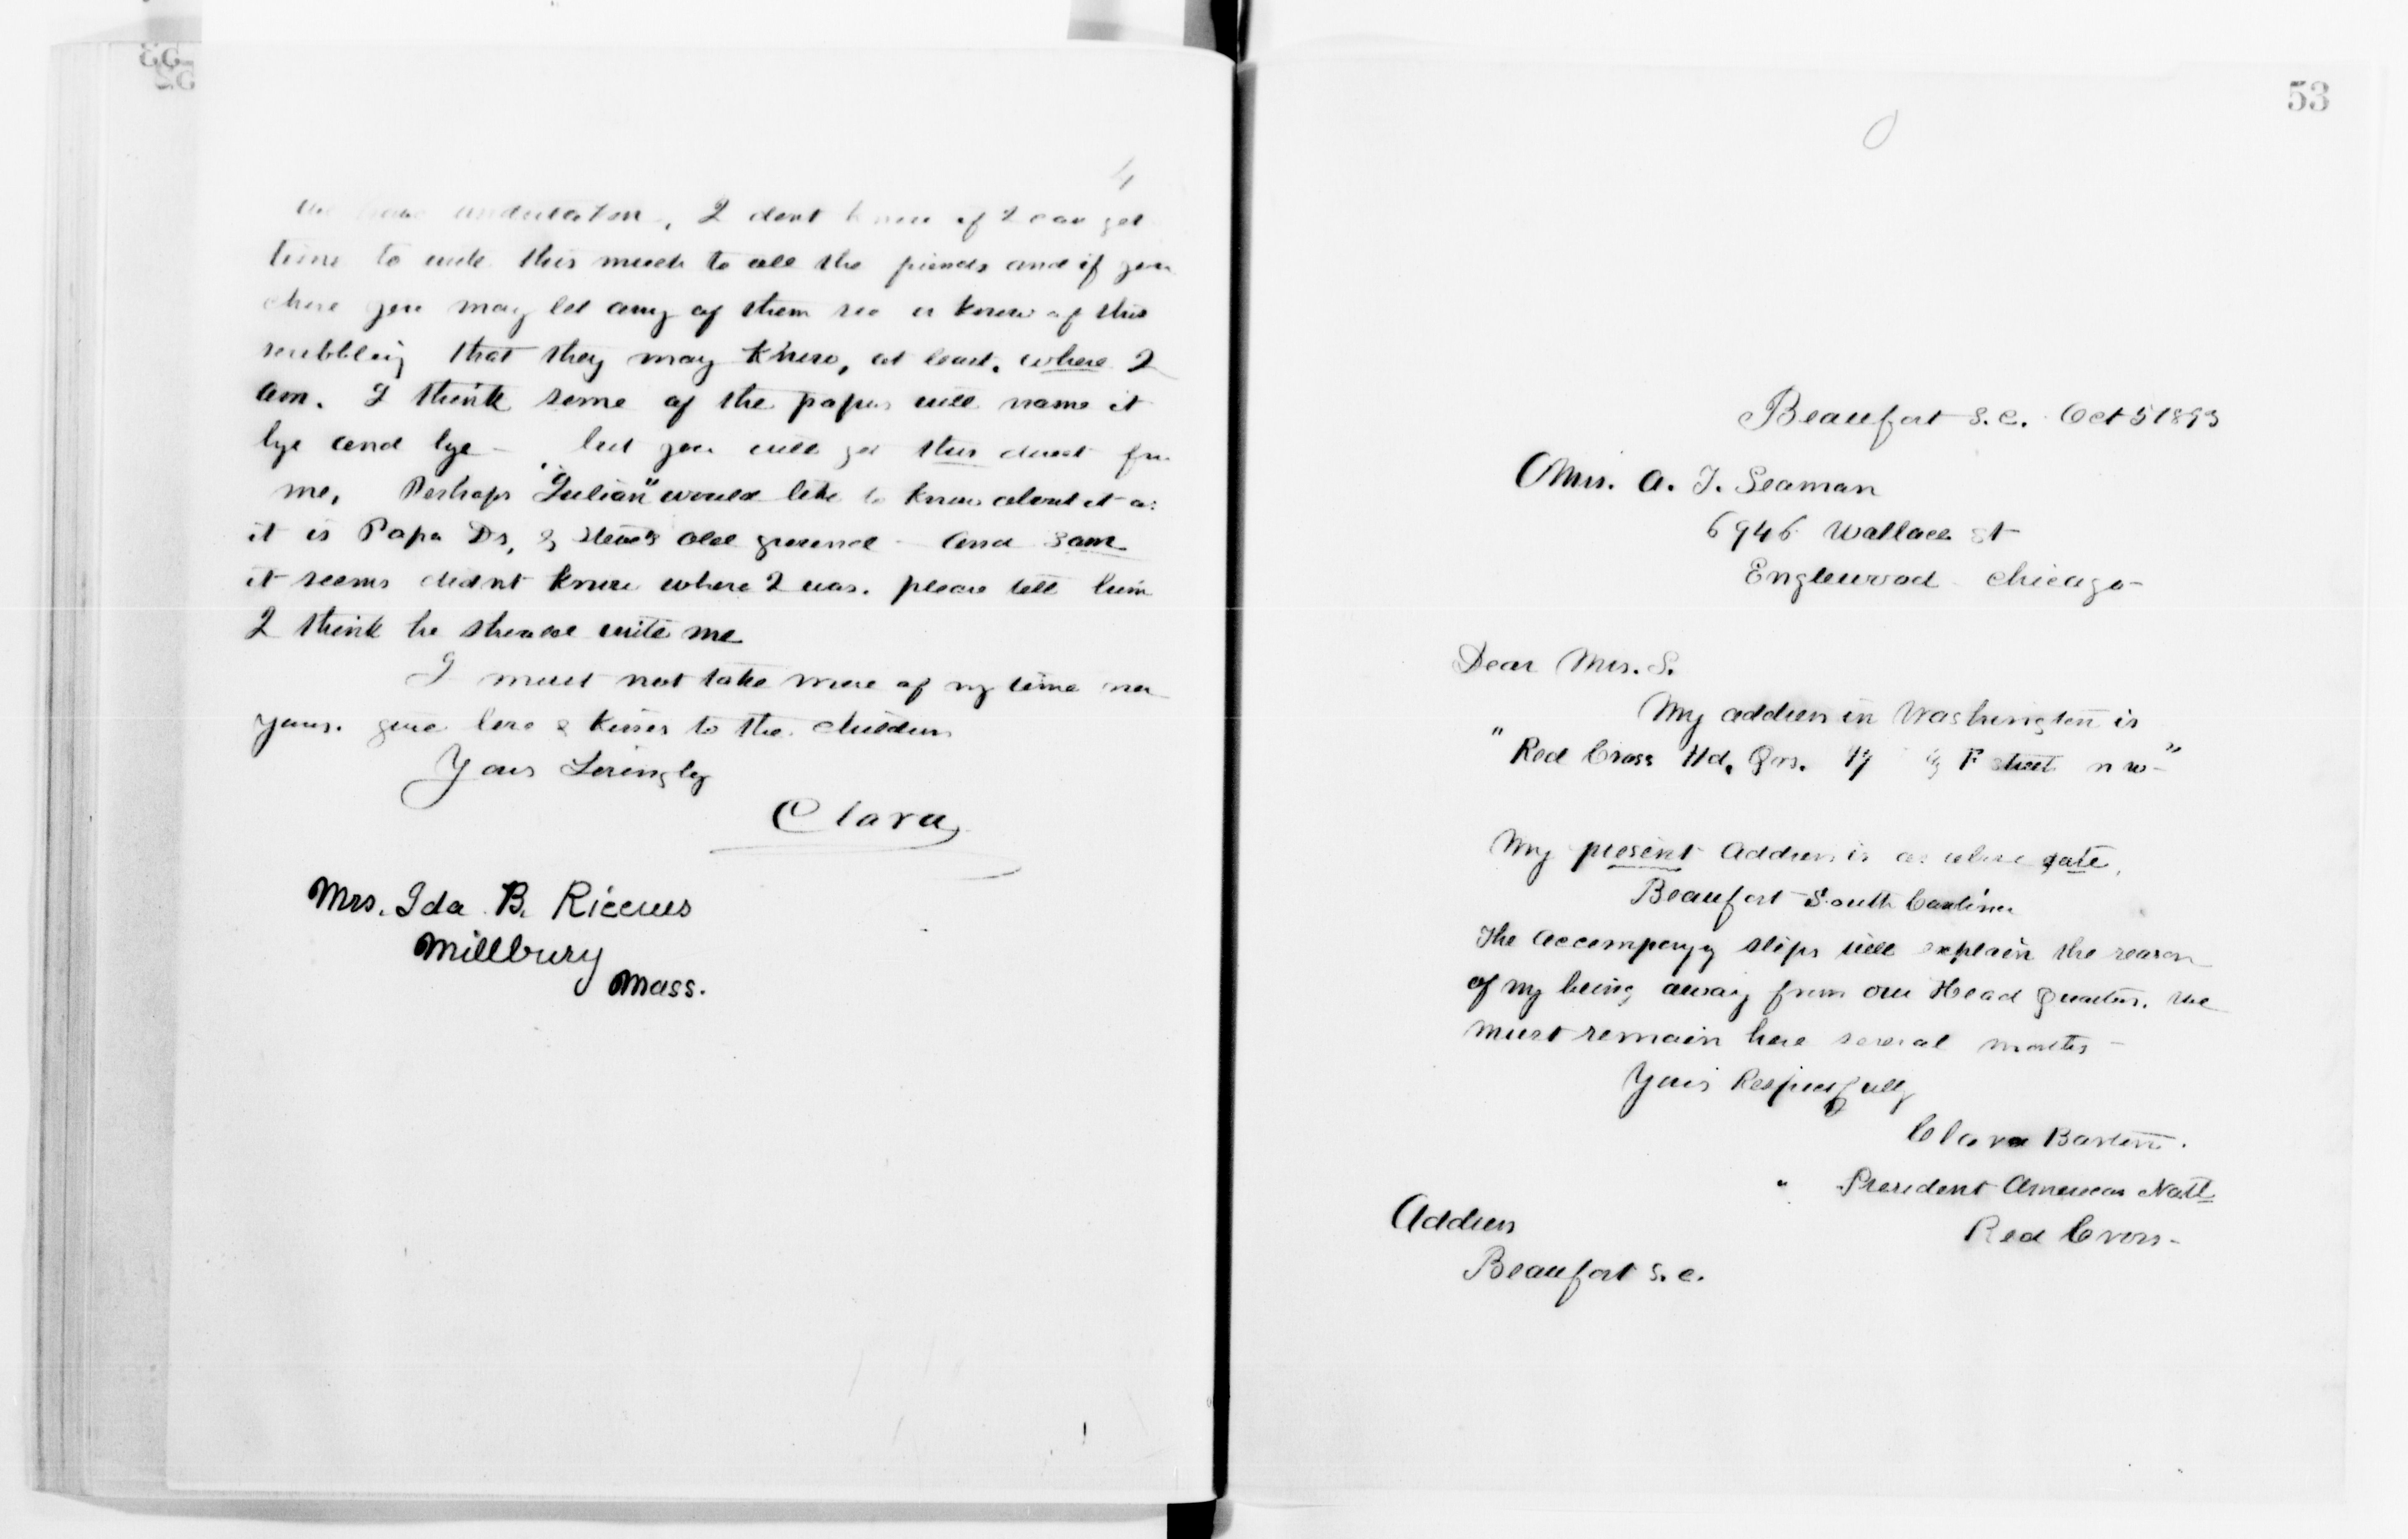 4
we have undertaken, I dont know if I can get
time to write this much to all the friends and if you
chose you may let any of them see or know of this
scribbling that they may know, at least, where I
am. I think some of the papers will name it
bye and bye - but you will get this direct from
me, Perhaps "Julian" would like to know about it as
it is Papa Drs, & Steve's old ground - and Sam
it seems didnt know where I was. please tell him
I think he should write me
I must not take more of my time nor
yours. give love & kisses to the children
Yours Lovingly
Clara
Mrs. Ida B. Riccius
Millbury
Mass.
53
Beaufort S.C. Oct 5 1893
Mrs. A. J. Seaman
6946 Wallace st
Englewood Chicago
Dear Mrs. S.
My address in Washington is
"Red Cross Hd. Qrs. 17 & F street n w-"
My present address is as above date,
Beaufort South Carolina
The accompayg slips will explain the reason
of my being away from our Head Quarters. We
must remain here several months -
Yours Respectfully
Clara Barton.
President American Natl
Red Cross-
Address
Beaufort S.C.